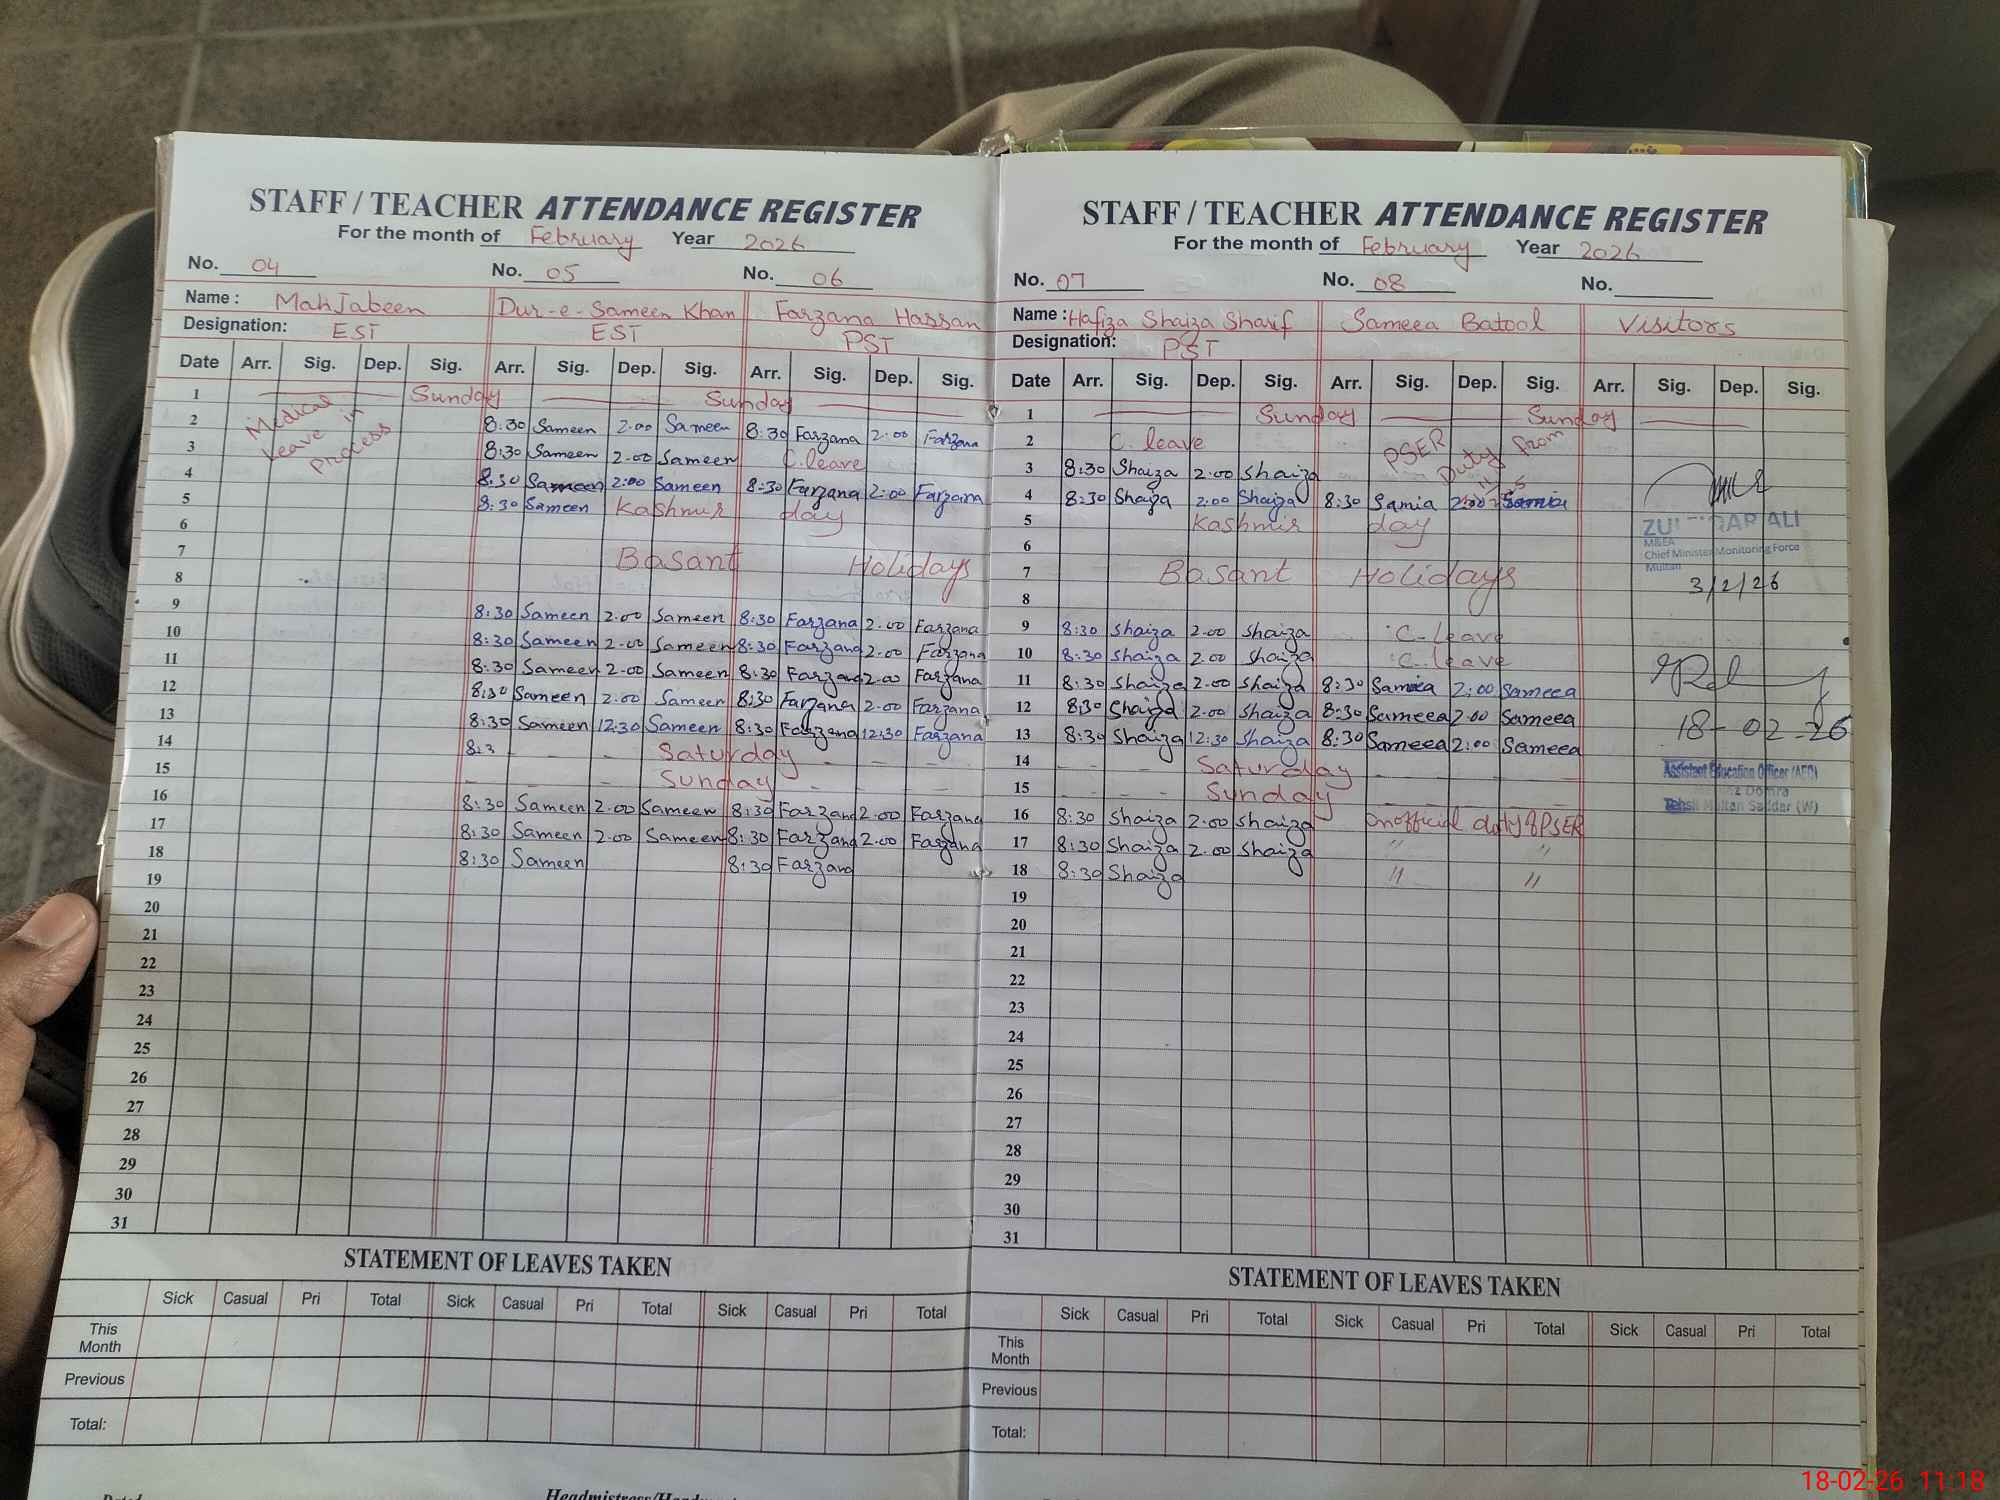 STAFF / TEACHER ATTENDANCE REGISTER
For the month of February Year 2026
No. 04 No. 05 No. 06
Name : MahJabeen Dur-e-Sameen Khan Farzana Hassan
Designation: EST EST PST
Date Arr. Sig. Dep. Sig. Arr. Sig. Dep. Sig. Arr. Sig. Dep. Sig.
1 Sunday Sunday
Medical Leave in Process
2 8:30 Sameen 2.00 Sameen 8:30 Farzana 2:00 Farzana
3 8:30 Sameen 2.00 Sameen C.leave
4 8:30 Sameen 2:00 Sameen 8:30 Farzana 2:00 Farzana
5 8:30 Sameen Kashmir day
6
7 Basant Holidays
8
9 8:30 Sameen 2.00 Sameen 8:30 Farzana 2.00 Farzana
10 8:30 Sameen 2.00 Sameen 8:30 Farzana 2.00 Farzana
11 8:30 Sameen 2.00 Sameen 8:30 Farzana 2.00 Farzana
12 8:30 Sameen 2:00 Sameen 8:30 Farzana 2.00 Farzana
13 8:30 Sameen 12:30 Sameen 8:30 Farzana 12:30 Farzana
14 8:3 - - - Saturday - - -
15 - - - Sunday - - -
16 8:30 Sameen 2.00 Sameen 8:30 Farzana 2.00 Farzana
17 8:30 Sameen 2.00 Sameen 8:30 Farzana 2.00 Farzana
18 8:30 Sameen 8:30 Farzana
19
20
21
22
23
24
25
26
27
28
29
30
31
STATEMENT OF LEAVES TAKEN
Sick Casual Pri Total Sick Casual Pri Total Sick Casual Pri Total
This Month
Previous
Total:
STAFF / TEACHER ATTENDANCE REGISTER
For the month of February Year 2026
No. 07 No. 08 No.
Name : Hafiza Shaiza Sharif Sameea Batool Visitors
Designation: PST
Date Arr. Sig. Dep. Sig. Arr. Sig. Dep. Sig. Arr. Sig. Dep. Sig.
1 Sunday Sunday
2 C. leave
PSER Duty from
3 8:30 Shaiza 2:00 Shaiza
4 8:30 Shaiza 2:00 Shaiza 8:30 Samia 2:00 Samia
5 Kashmir day
6
7 Basant Holidays
8
9 8:30 Shaiza 2.00 Shaiza C. leave
10 8:30 Shaiza 2.00 Shaiza C. leave
11 8:30 Shaiza 2.00 Shaiza 8:30 Samia 2:00 Sameea
12 8:30 Shaiza 2.00 Shaiza 8:30 Sameea 2.00 Sameea
13 8:30 Shaiza 12:30 Shaiza 8:30 Sameea 2:00 Sameea
14 - - - Saturday - - -
15 - - - Sunday - - -
16 8:30 Shaiza 2.00 Shaiza Onofficial duty of PSER
17 8:30 Shaiza 2.00 Shaiza " "
18 8:30 Shaiza " "
19
20
21
22
23
24
25
26
27
28
29
30
31
ALI
M&EA
Chief Minister Monitoring Force
Multan
3/2/26
18-02-26
Assistant Education Officer (AEO)
Tehsil Multan Saddar (W)
STATEMENT OF LEAVES TAKEN
Sick Casual Pri Total Sick Casual Pri Total Sick Casual Pri Total
This Month
Previous
Total:
18-02-26 11:18